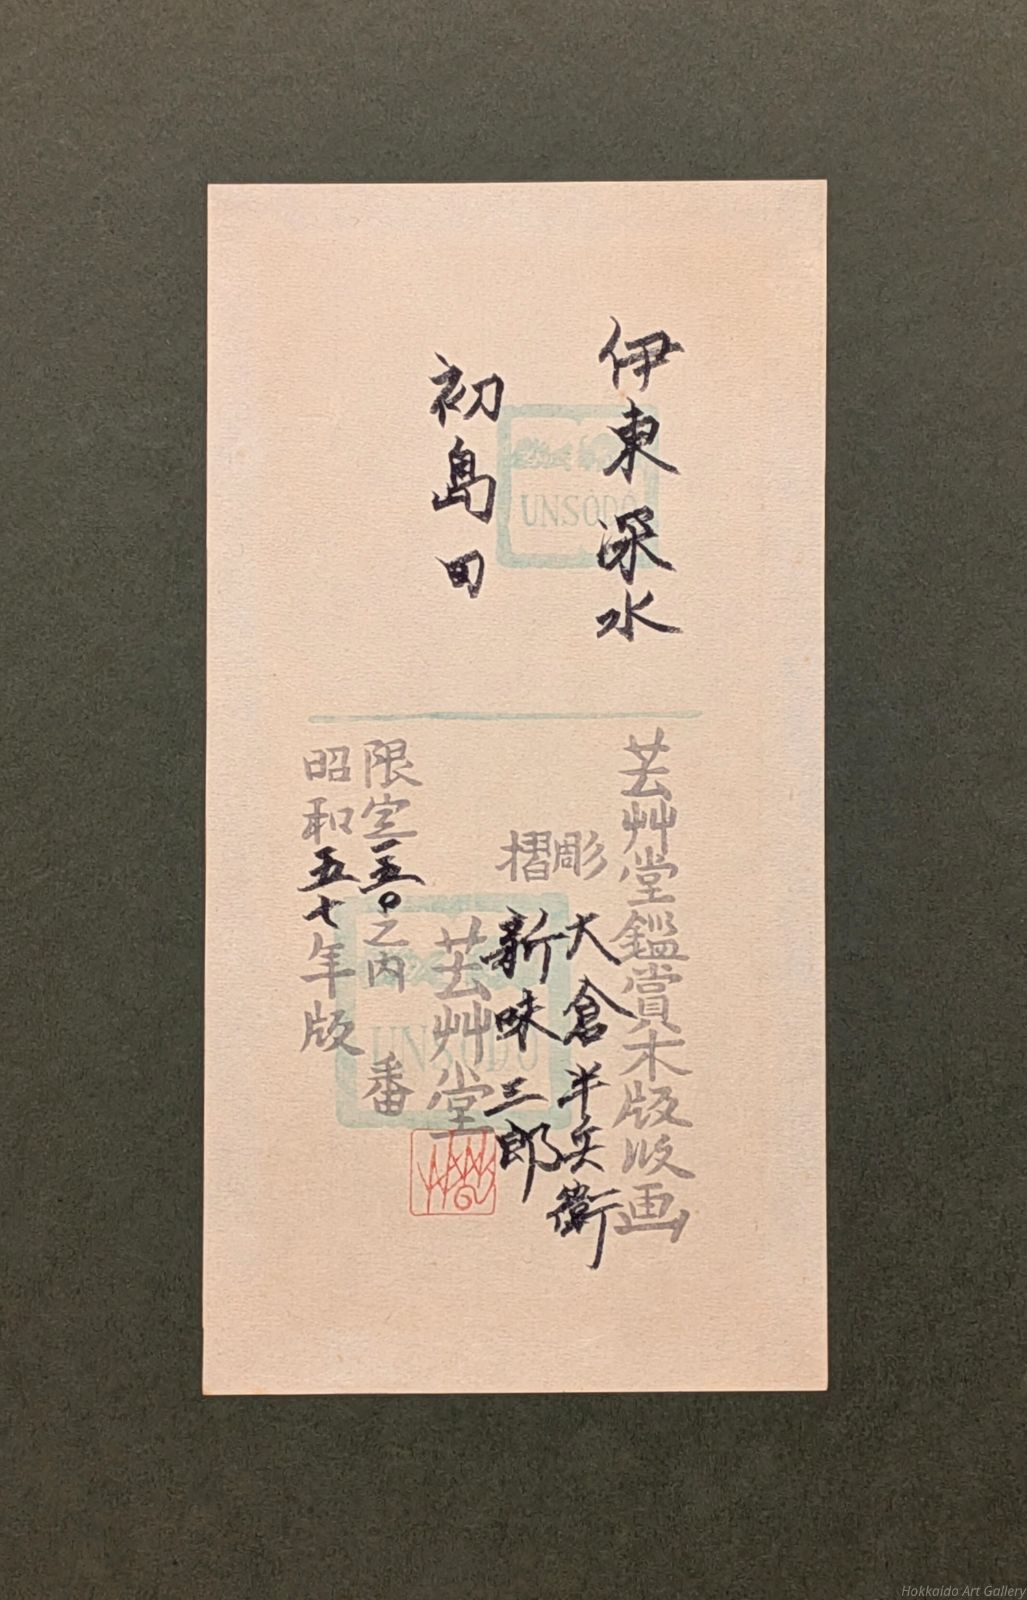 伊東深水
初島田
UNSŌDŌ
芸艸堂鑑賞木版版画
彫 大倉半兵衛
摺 新味三郎
芸艸堂
UNSŌDŌ
限定二五〇之内 番
昭和五七年版
Hokkaido Art Gallery